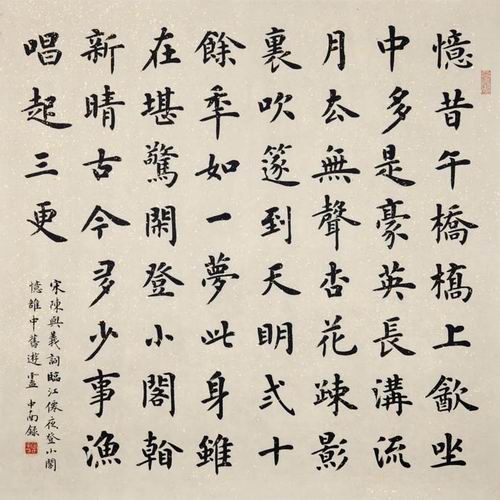 憶昔午橋橋上㱃坐
中多是豪英長溝流
月厺無聲杏花疎影
裏吹篴到天明弍十
餘秊如一夢此身雖
在堪驚閑登小閣看
新晴古今多少事漁
唱起三更
宋陳與義詞臨江僊夜登小閣
憶雒中舊遊 中南錄